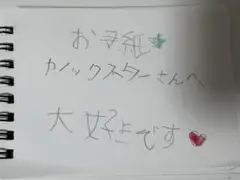 お手紙
カノックスターさんへ
大好きです